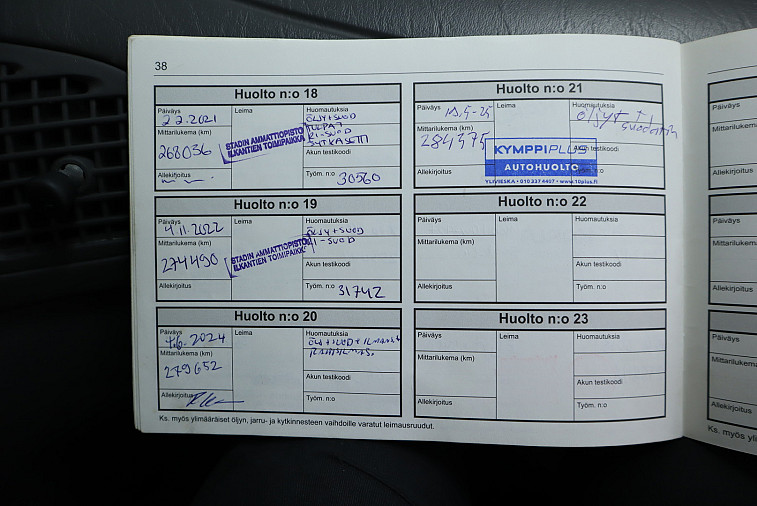 38
Huolto n:o 18
Päiväys
2 2.2021
Leima
Huomautuksia
ÖLJY+SUOD
TULPAT
RI-SUOD
Mittarilukema (km)
268036
STADIN AMMATTIOPISTO
ILKANTIEN TOIMIPAIKKA
Akun testikoodi
Allekirjoitus
Työm. n:o 30560
Huolto n:o 19
Päiväys
4.11.2022
Leima
Huomautuksia
ÖLJY+SUOD
RI-SUOD
Mittarilukema (km)
274490
STADIN AMMATTIOPISTO
ILKANTIEN TOIMIPAIKKA
Akun testikoodi
Allekirjoitus
Työm. n:o 31742
Huolto n:o 20
Päiväys
4.6.2024
Leima
Huomautuksia
Mittarilukema (km)
279652
Akun testikoodi
Allekirjoitus
Työm. n:o
Huolto n:o 21
Päiväys
Leima
Huomautuksia
öljyt +
suodatin
Mittarilukema (km)
284575
KYMPPIPLUS
AUTOHUOLTO
YLIVIESKA • 010 337 4407 • www.10plus.fi
Akun testikoodi
Allekirjoitus
Työm. n:o
Huolto n:o 22
Päiväys
Leima
Huomautuksia
Mittarilukema (km)
Akun testikoodi
Allekirjoitus
Työm. n:o
Huolto n:o 23
Päiväys
Leima
Huomautuksia
Mittarilukema (km)
Akun testikoodi
Allekirjoitus
Työm. n:o
Ks. myös ylimääräiset öljyn, jarru- ja kytkinnesteen vaihdoille varatut leimausruudut.
Päiväys
Mittarilukema
Allekirjoitus
Päiväys
Mittarilukema
Allekirjoitus
Päiväys
Mittarilukema
Allekirjoitus
Ks. myös yli